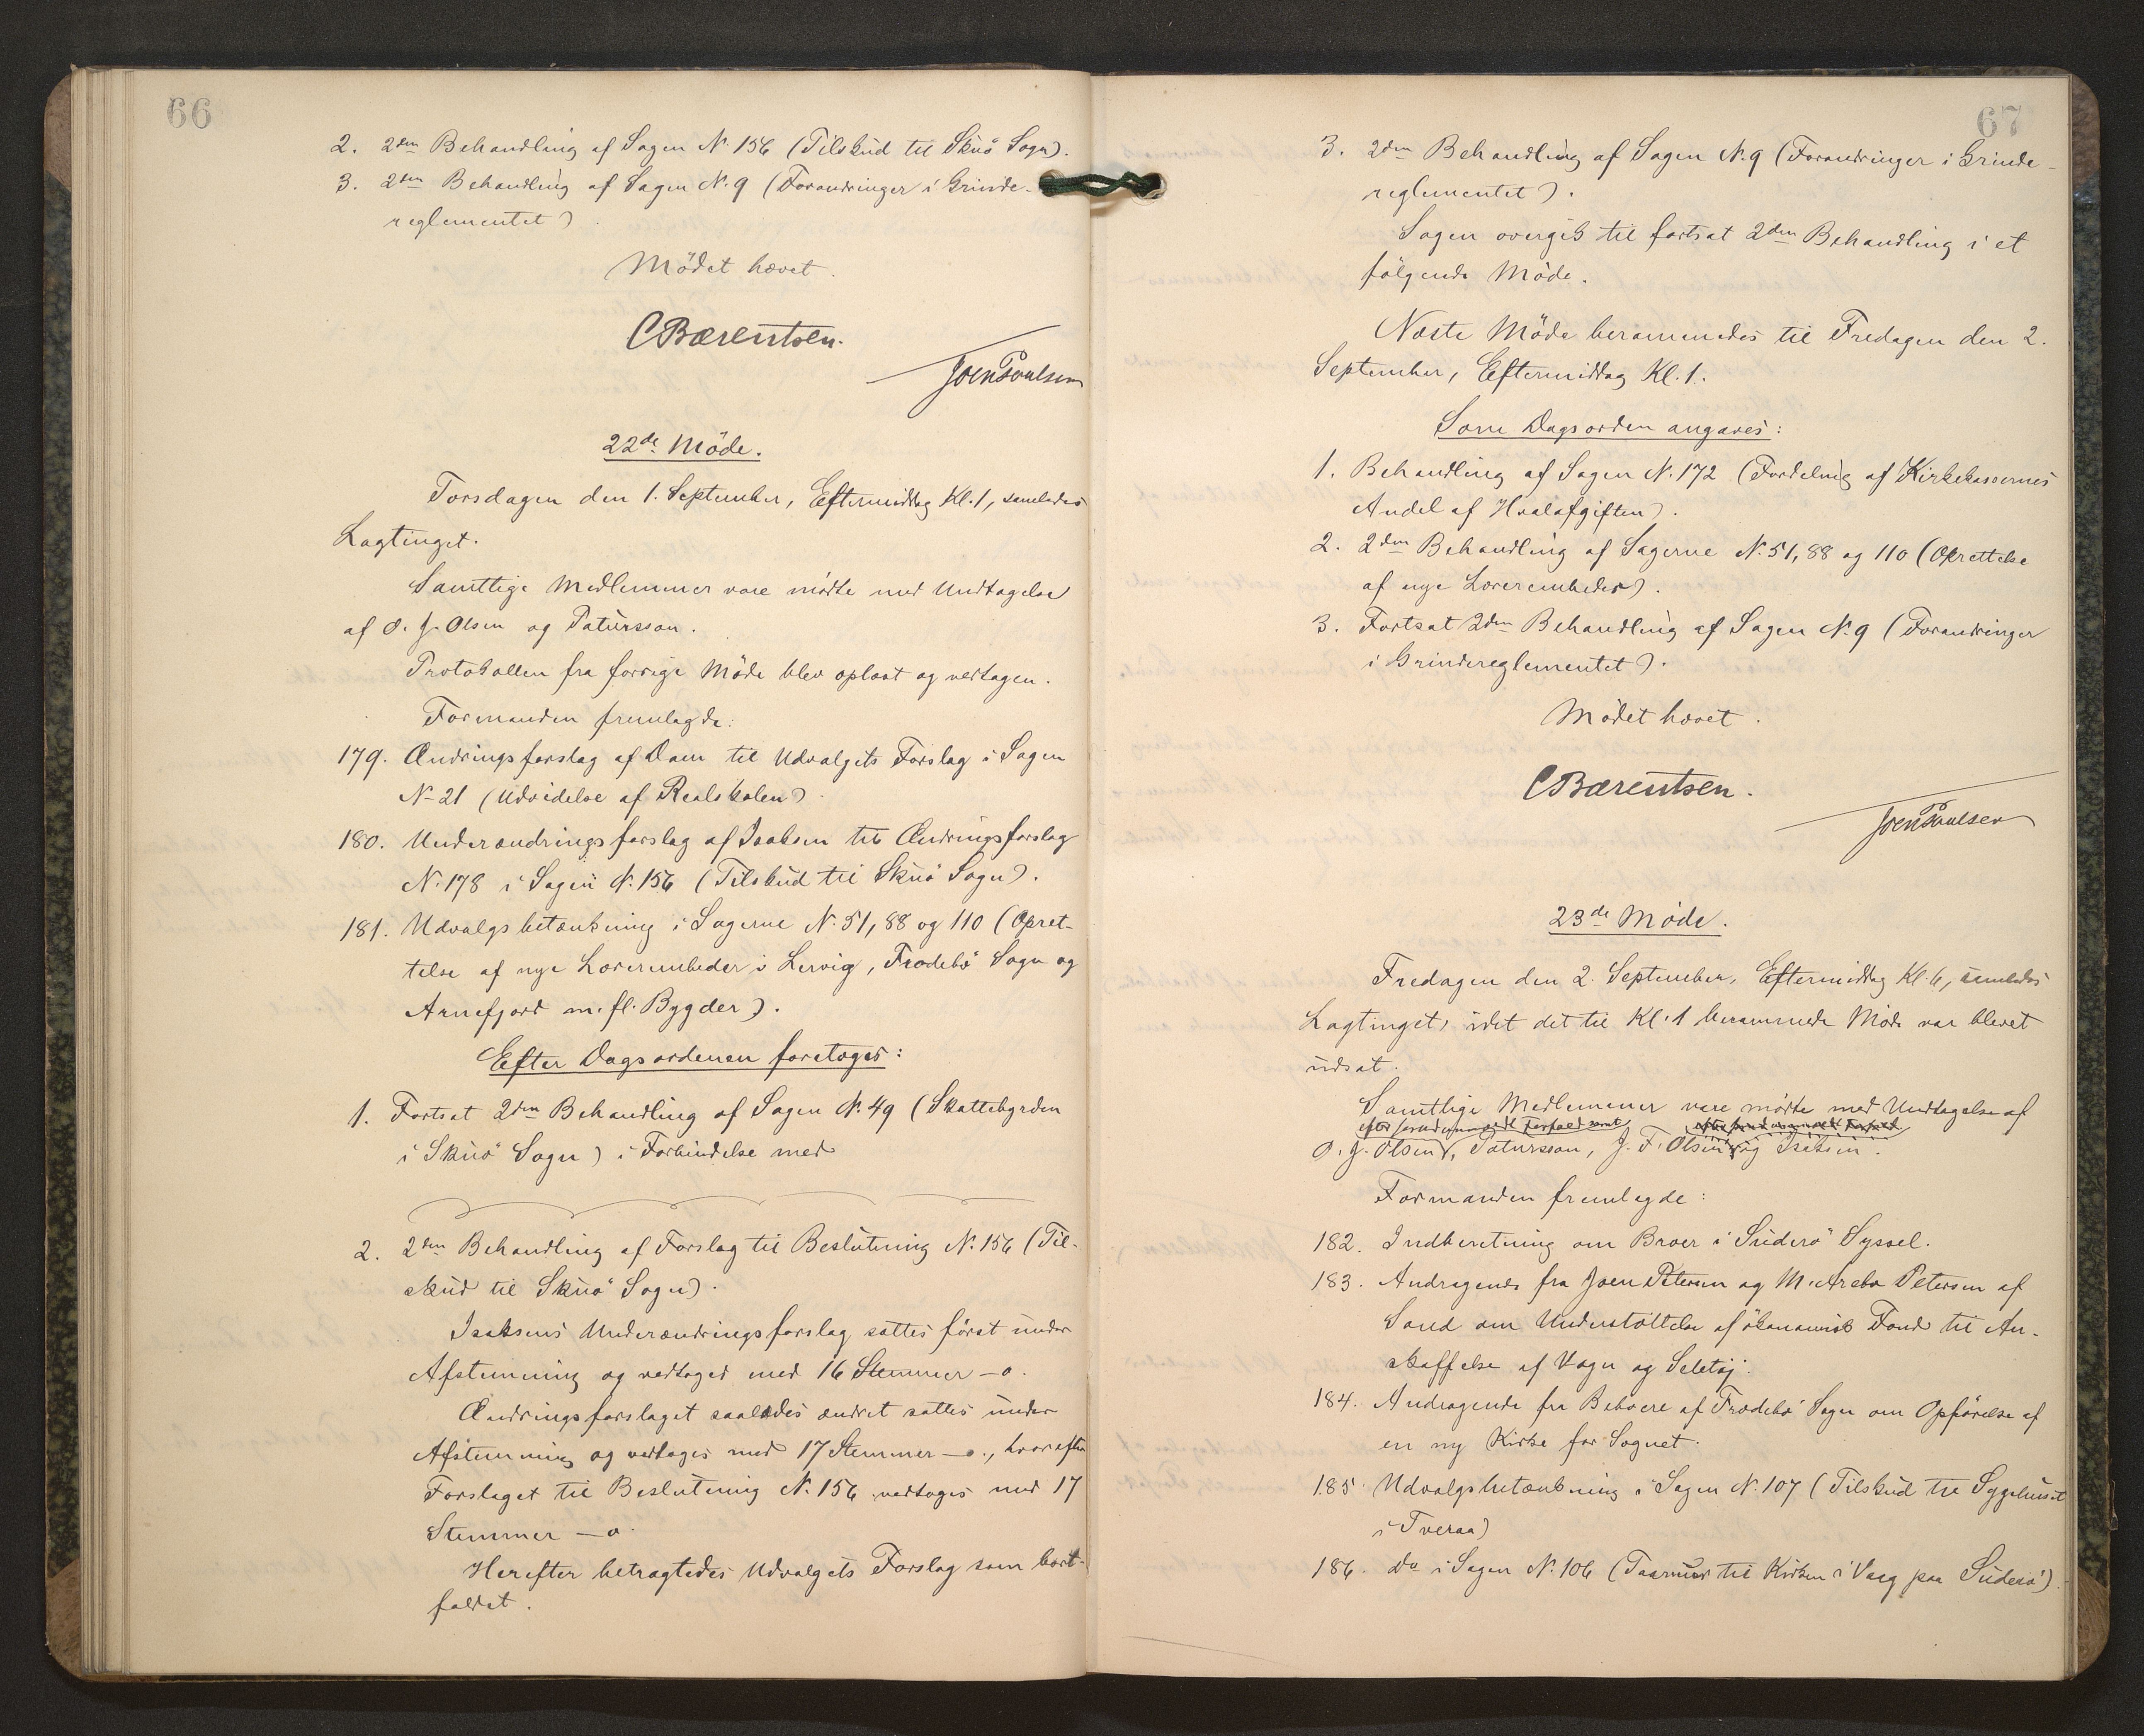 66
2. 2den Behandling af Sagen N. 156 (Tilskud til Skuö Sogn).
3. 2den Behandling af Sagen N. 9 (Forandringer i Grinde-
reglementet)
Mödet hævet.
C Bærentsen.
Joen Poulsen
22de Möde.
Torsdagen den 1. September, Eftermiddag Kl. 1, samledes
Lagtinget.
Samtlige Medlemmer vare mödte med Undtagelse
af O. J. Olsen og Patursson.
Protokollen fra forrige Möde blev oplæst og vedtagen.
Formanden fremlagde:
179. Ændringsforslag af Dam til Udvalgets Forslag i Sagen
N. 21 (Udvidelse af Realskolen)
180. Underændringsforslag af Isaksen til Ændringsforslag
N. 178 i Sagen N. 156 (Tilskud til Skuö Sogn).
181. Udvalgsbetænkning i Sagerne N. 51, 88 og 110 (Opret-
telse af nye Lærerembeder i Lervig, Frodebö Sogn og
Arnefjord m. fl. Bygder).
Efter Dagsordenen foretoges:
1. Fortsat 2den Behandling af Sagen N. 49 (Skattebyrden
i Skuö Sogn) i Forbindelse med
2. 2den Behandling af Forslag til Beslutning N. 156 (Til-
skud til Skuö Sogn).
Isaksens Underændringsforslag sattes först under
Afstemning og vedtoges med 16 Stemmer – 0.
Ændringsforslaget saaledes ændret sattes under
Afstemning og vedtoges med 17 Stemmer – 0., hvorefter
Forslaget til Beslutning N. 156 vedtoges med 17
Stemmer – 0.
Herefter betragtedes Udvalgets Forslag som bort-
faldet.
67
3. 2den Behandling af Sagen N. 9 (Forandringer i Grinde-
reglementet).
Sagen overgik til fortsat 2den Behandling i et
fölgende Möde.
Næste Möde berammedes til Fredagen den 2.
September, Eftermiddag Kl. 1.
Som Dagsorden angaves:
1. Behandling af Sagen N. 172 (Fordeling af Kirkekassernes
Andel af Hvalafgiften).
2. 2den Behandling af Sagerne N. 51, 88 og 110 (Oprettelse
af nye Lærerembeder).
3. Fortsat 2den Behandling af Sagen N. 9 (Forandringer
i Grindereglementet).
Mödet hævet.
C Bærentsen.
Joen Poulsen
23de Möde.
Fredagen den 2. September, Eftermiddag Kl. 6, samledes
Lagtinget, idet det til Kl. 1 berammede Möde var blevet
udsat.
Samtlige Medlemmer vare mödte med Undtagelse af
efter forud anmeldt Forfald samt
O. J. Olsen, Patursson, J. F. Olsen og Isaksen.
Formanden fremlagde:
182. Indberetning om Broer i Suderö Syssel.
183. Andragende fra Joen Petersen og M. Areba Petersen af
Sand om Understöttelse af ökonomisk Fond til An-
skaffelse af Vogn og Seletöj.
184. Andragende fra Beboere af Frodebö Sogn om Opförelse af
en ny Kirke for Sognet.
185. Udvalgsbetænkning i Sagen N. 107 (Tilskud til Sygehuset
i Tveraa)
186. Do i Sagen N. 106 (Taarnuhr til Kirken i Vaag paa Suderö).